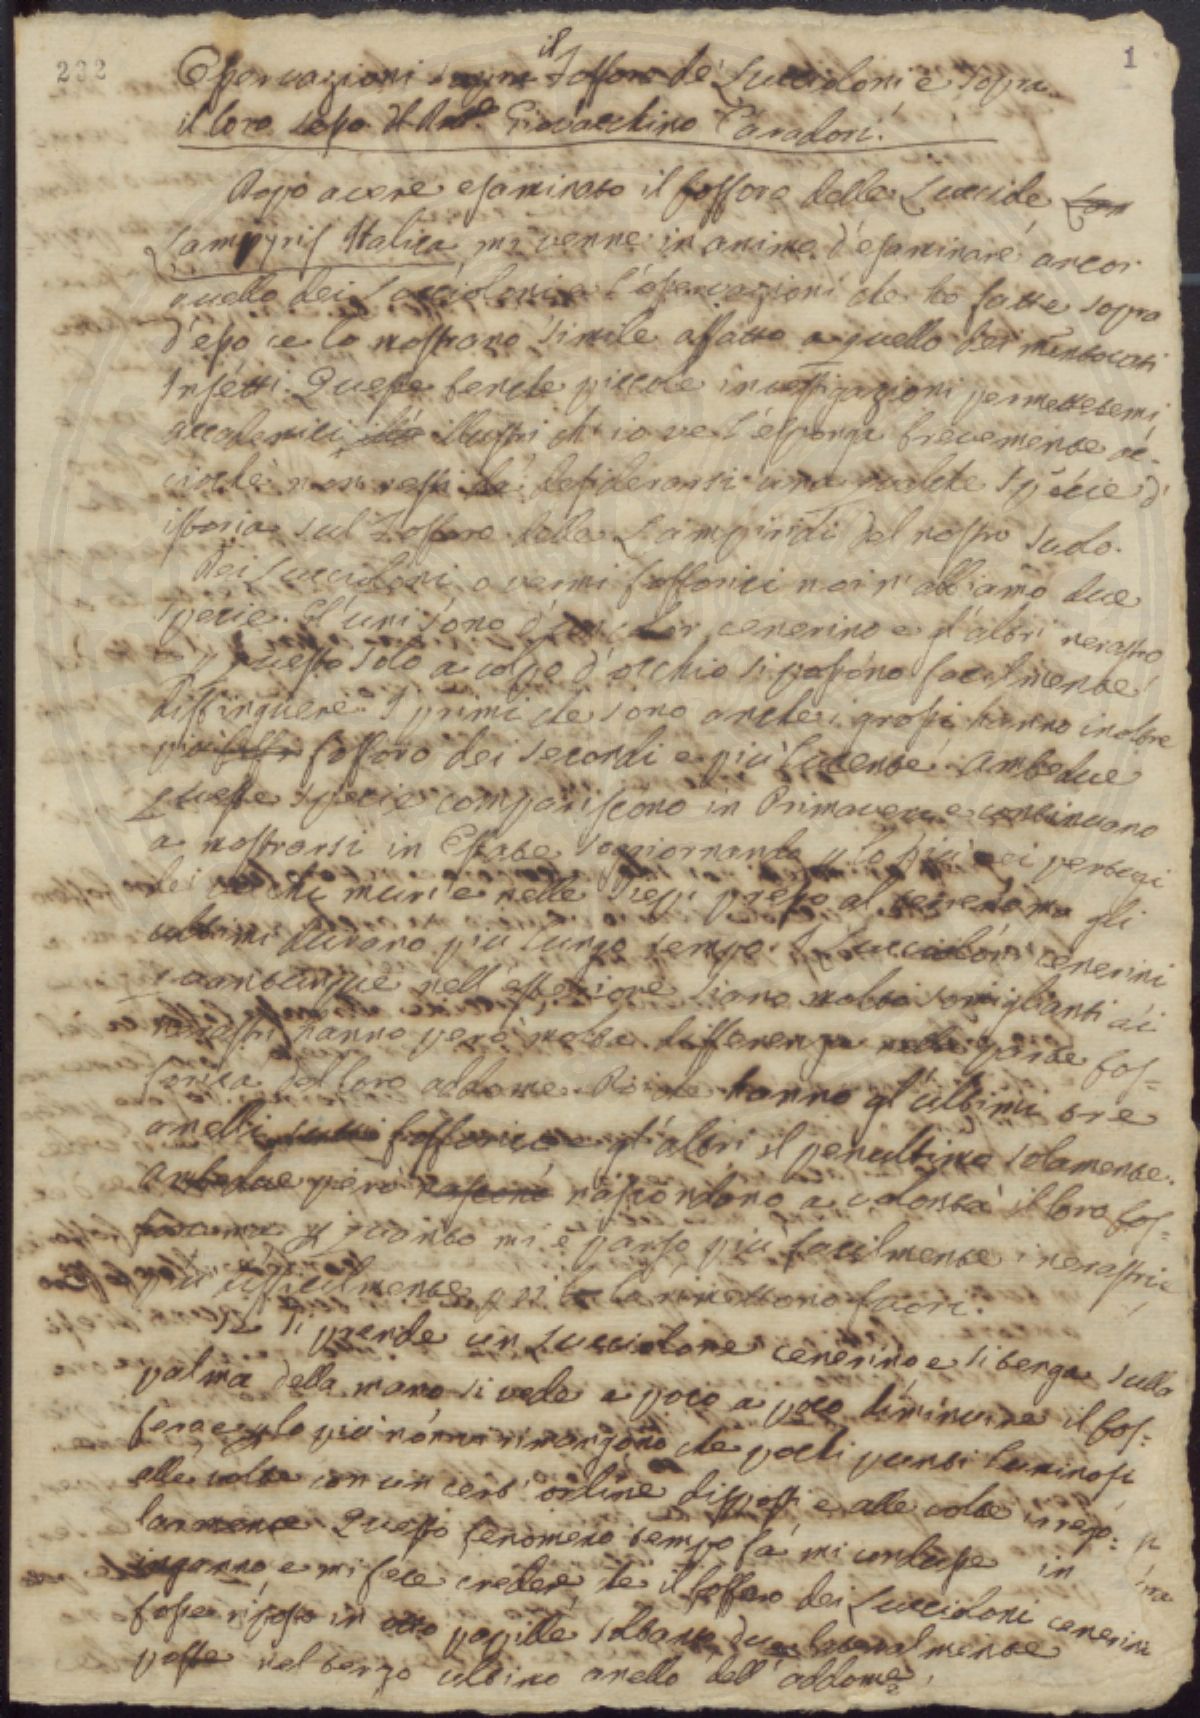 232
1
Osservazioni sopra il Fosforo de' Luccioloni e sopra
il loro sesso del Dott.e Giovacchino Caradori.
Dopo avere esaminato il fosforo delle Lucciole Lam
Lampyris Italica mi venne in animo d'esaminare ancor
quello dei Luccioloni e l'osservazioni che ho fatte sopra
d'esso ce lo mostrano simile affatto a quello dei mentovati
Insetti. Queste benche piccole investigazioni permettetemi,
accademici illustri ch'io ve l'esponga brevemente ac-
ciochè non resti da desiderarsi una qualche specie d'
istoria sul Fosforo delle Lampiridi del nostro suolo.
Dei Luccioloni o vermi fosforici noi n'abbiamo due
specie. Gl'uni sono di color cenerino e gl'altri nerastro
e p questo solo a colpo d'occhio si possono facilmente
distinguere. I primi che sono anche i grossi hanno inoltre
più fosforo dei secondi e più lucente. Ambedue
queste specie compariscono in Primavera e continuano
a mostrarsi in Estate soggiornando p lo più nei pertugi
dei vecchi muri e nelle siepi presso al terreno ma gli
ultimi durano più lungo tempo. I Luccioloni cenerini
quantunque nell'esteriore siano molto somiglianti ai
nerastri hanno però molta differenza nella parte fos-
forica del loro addome. Poiche hanno gl'ultimi tre
anelli fosforici e gl'altri il penultimo solamente.
Ambedue però nascondono a volontà il loro fos-
foro ma p quanto mi è parso più facilmente i nerastri e
più difficilmente poi lo rimettono fuori.
Se si prende un Lucciolone cenerino e si tenga sulla
palma della mano si vede a poco a poco diminuire il fos-
foro e p lo più non vi rimangono che pochi punti luminosi
alle volte con un cert'ordine disposti e alle volte irrego-
larmente. Questo fenomeno tempo fà mi condusse in
inganno e mi fece credere che il fosforo dei Luccioloni cenerini
fosse riposto in otto papille soltanto due lateralmente
poste nel terzo ultimo anello dell'addome.